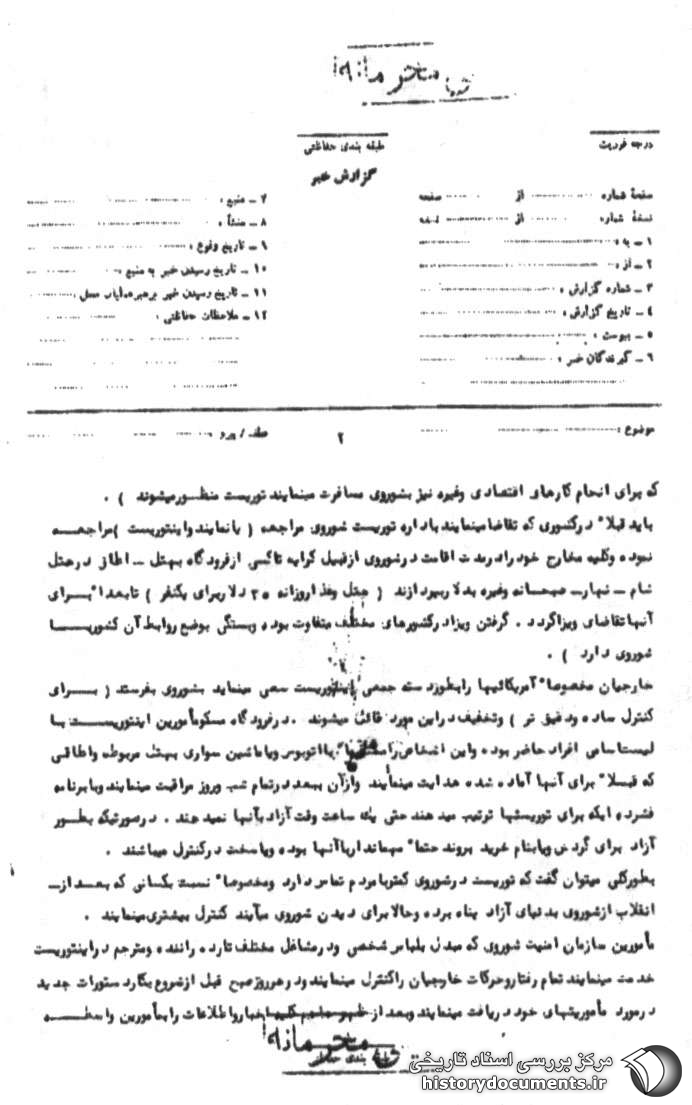 محرمانه
طبقه بندی حفاظتی
درجه فوریت
گزارش خبر
صفحهٔ شماره از صفحه
نسخهٔ شماره از نسخه
۱ ـ به :
۲ ـ از :
۳ ـ شماره گزارش :
۴ ـ تاریخ گزارش :
۵ ـ پیوست :
۶ ـ گیرندگان خبر :
۷ ـ منبع :
۸ ـ منشأ :
۹ ـ تاریخ وقوع :
۱۰ ـ تاریخ رسیدن خبر به منبع :
۱۱ ـ تاریخ رسیدن خبر برهبر عملیات محل :
۱۲ ـ ملاحظات حفاظتی :
موضوع : ۲ عطف / پیرو
که برای انجام کارهای اقتصادی وغیره نیز بشوروی مسافرت مینمایند توریست منظور میشوند ) .
باید قبلا" درکشوری که تقاضا مینمایند باداره توریست شوروی مراجعه ( یا نماینده اینتوریست ) مراجعه
نموده وکلیه مخارج خود را در مدت اقامت در شوروی ازقبیل کرایه تاکسی ازفرودگاه بهتل ـ اطاق در هتل
شام ـ نهار ـ صبحانه وغیره بدلار بپردازند ( هتل وغذا روزانه ۲۵ دلار برای یکنفر ) تا بعدا" برای
آنها تقاضای ویزا گردد . گرفتن ویزا در کشورهای مختلف متفاوت بوده وبستگی بوضع روابط آن کشور با
شوروی دارد ) .
خارجیان مخصوصا" آمریکائیها را بطور دسته جمعی اینتوریست سعی مینماید بشوروی بفرستد ( برای
کنترل ساده ودقیق تر ) وتخفیف در این مورد قائل میشوند . در فرودگاه مسکو مأمورین اینتوریست با
لیست اسامی افراد حاضر بوده واین اشخاص را با اتوبوس ویا ماشین سواری بهتل مربوطه واطاقی
که قبلا" برای آنها آماده شده هدایت مینمایند وازآن ببعد در تمام شب وروز مراقبت مینمایند وبا برنامه
فشرده ایکه برای توریستها ترتیب میدهند حتی یک ساعت وقت آزاد بآنها نمیدهند . درصورتیکه بطور
آزاد برای گردش ویا بنام خرید بروند حتما" مهماندار با آنها بوده ویا سخت در کنترل میباشند .
بطورکلی میتوان گفت که توریست در شوروی کمتر با مردم تماس دارد ومخصوصا" نسبت بکسانی که بعد از ـ
انقلاب ازشوروی بدنیای آزاد پناه برده وحالا برای دیدن شوروی میآیند کنترل بیشتری مینمایند .
مأمورین سازمان امنیت شوروی که مبدل بلباس شخصی ودر مشاغل مختلف راننده ومترجم در اینتوریست
خدمت مینمایند تمام رفتار وحرکات خارجیان را کنترل مینمایند ودر هر روز صبح قبل از شروع بکار دستورات جدید
در مورد مأموریتهای خود دریافت مینمایند وبعد از کلیه اخبار واطلاعات را بمأمورین واسطه
محرمانه
طبقه بندی حفاظتی
مرکز بررسی اسناد تاریخی
historydocuments.ir